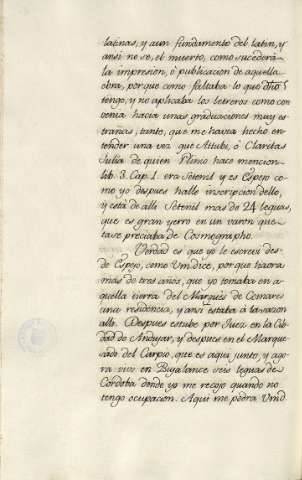 latinas, y aun fundamento del latin, y
ansi no se, el muerto, como sucederá
la impresion, ó publicacion de aquella
obra, porque como faltaba lo que dho
tengo, y no aplicaba los letreros como con
venia hacia unas graduaciones muy es-
trañas, tanto, que me havia hecho en-
tender una vez que Attubi, ó Claritas
Julia de quien Plinio hace mencion
lib. 3. Cap. 1. era Setenil y es Espejo co-
mo yo despues hallé inscripcion dello,
y está de alli Setenil mas de 24 leguas,
que es gran yerro en un varon que
tanse preciaba de Cosmographo.
Verdad es que yo le escrevi des-
de Espejo, como Vm dice, porque haora
mas de tres años, que yo tomaba en a-
quella tierra del Marqués de Comares
una residencia, y ansi estaba á la sazon
alli. Despues estube por Juez en la Ciu-
dad de Andujar, y despues en el Marque-
sado del Carpio, que es aqui junto, y ago-
ra vivo en Bujalance seis leguas de
Cordoba donde yo me recojo quando no
tengo ocupacion. Aqui me podra Vmd